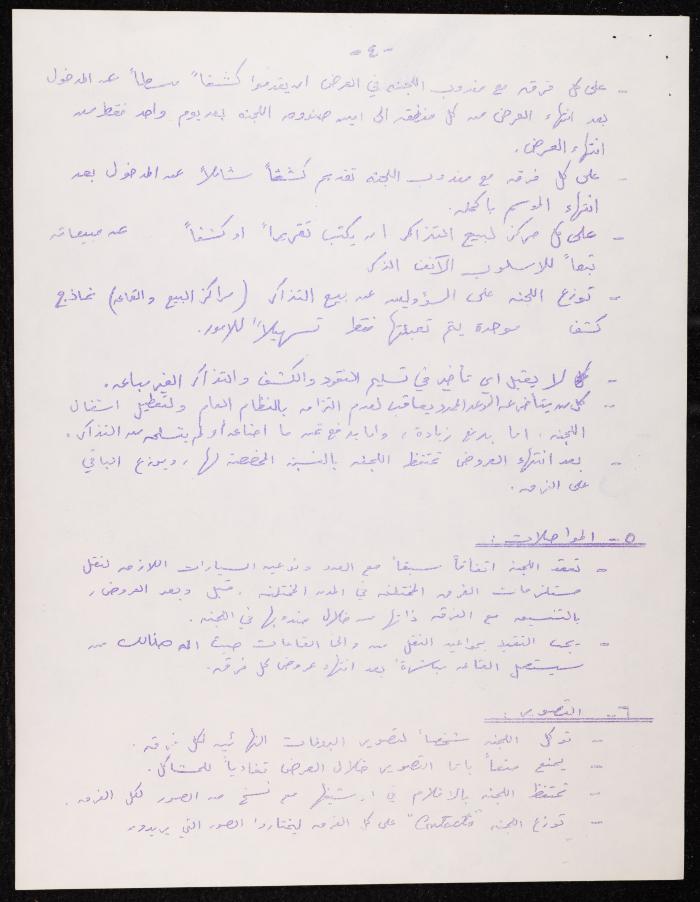 - ٤ -
- على كل فرقه مع مندوب اللجنه في العرض ان يقدموا كشفاً مبسطاً عن المدخول
بعد انتهاء العرض من كل منطقه الى امين صندوق اللجنه بعد يوم واحد فقط من
انتهاء العرض.
- على كل فرقه مع مندوب اللجنه تقديم كشفاً شاملاً عن المدخول بعد
انتهاء الموسم باكمله.
- على كل مركز لبيع التذاكر ان يكتب تقريراً او كشفاً عن مبيعاته
تبعاً للاسلوب الآنف الذكر
- توزع اللجنه على المسؤولين عن بيع التذاكر (مراكز البيع والقاعه) نماذج
كشف موحدة يتم تعبئتها فقط تسهيلاً للامور.
- لا يقبل اي تأخير في تسليم النقود والكشف والتذاكر الغير مباعه.
- كل من يتأخر عن الموعد المحدد يعاقب لعدم التزامه بالنظام العام ولتعطيل اشغال
اللجنه، اما بدفع زيادة، واما بدفع ثمن ما اضاعه أو لم يتسلمه من التذاكر.
- بعد انتهاء العروض تحتفظ اللجنه بالنسبة المخصصة لها، ويوزع الباقي
على الفرق.
٥- المواصلات:
- تعقد اللجنه اتفاقاً مسبقاً مع العدد ونوعيه السيارات اللازمه لنقل
مستلزمات الفرق المختلفه في المدن المختلفه، قبل وبعد العروض،
بالتنسيق مع الفرقه ذاتها من خلال مندوبها في اللجنه.
- يجب التقيد بمواعيد النقل من والى القاعات حيث ان هنالك من
سيستعمل القاعه مباشرة بعد انتهاء عروض كل فرقه.
٦- التصوير:
- توكل اللجنه شخصاً لتصوير البروفات النهائيه لكل فرقه.
- يمنع منعاً باتا التصوير خلال العرض تفادياً للمشاكل.
- تحتفظ اللجنه بالافلام في ارشيفها مع نسخ من الصور لكل الفرق.
- توزع اللجنه "Contacts" على كل الفرق ليختاروا الصور التي يريدون